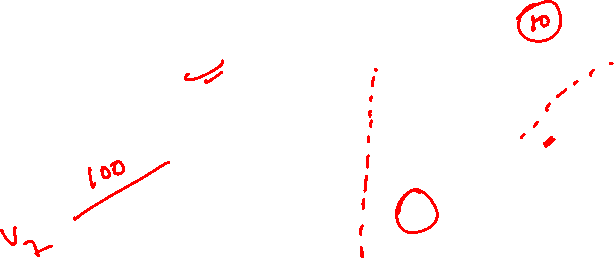 10
100
V2